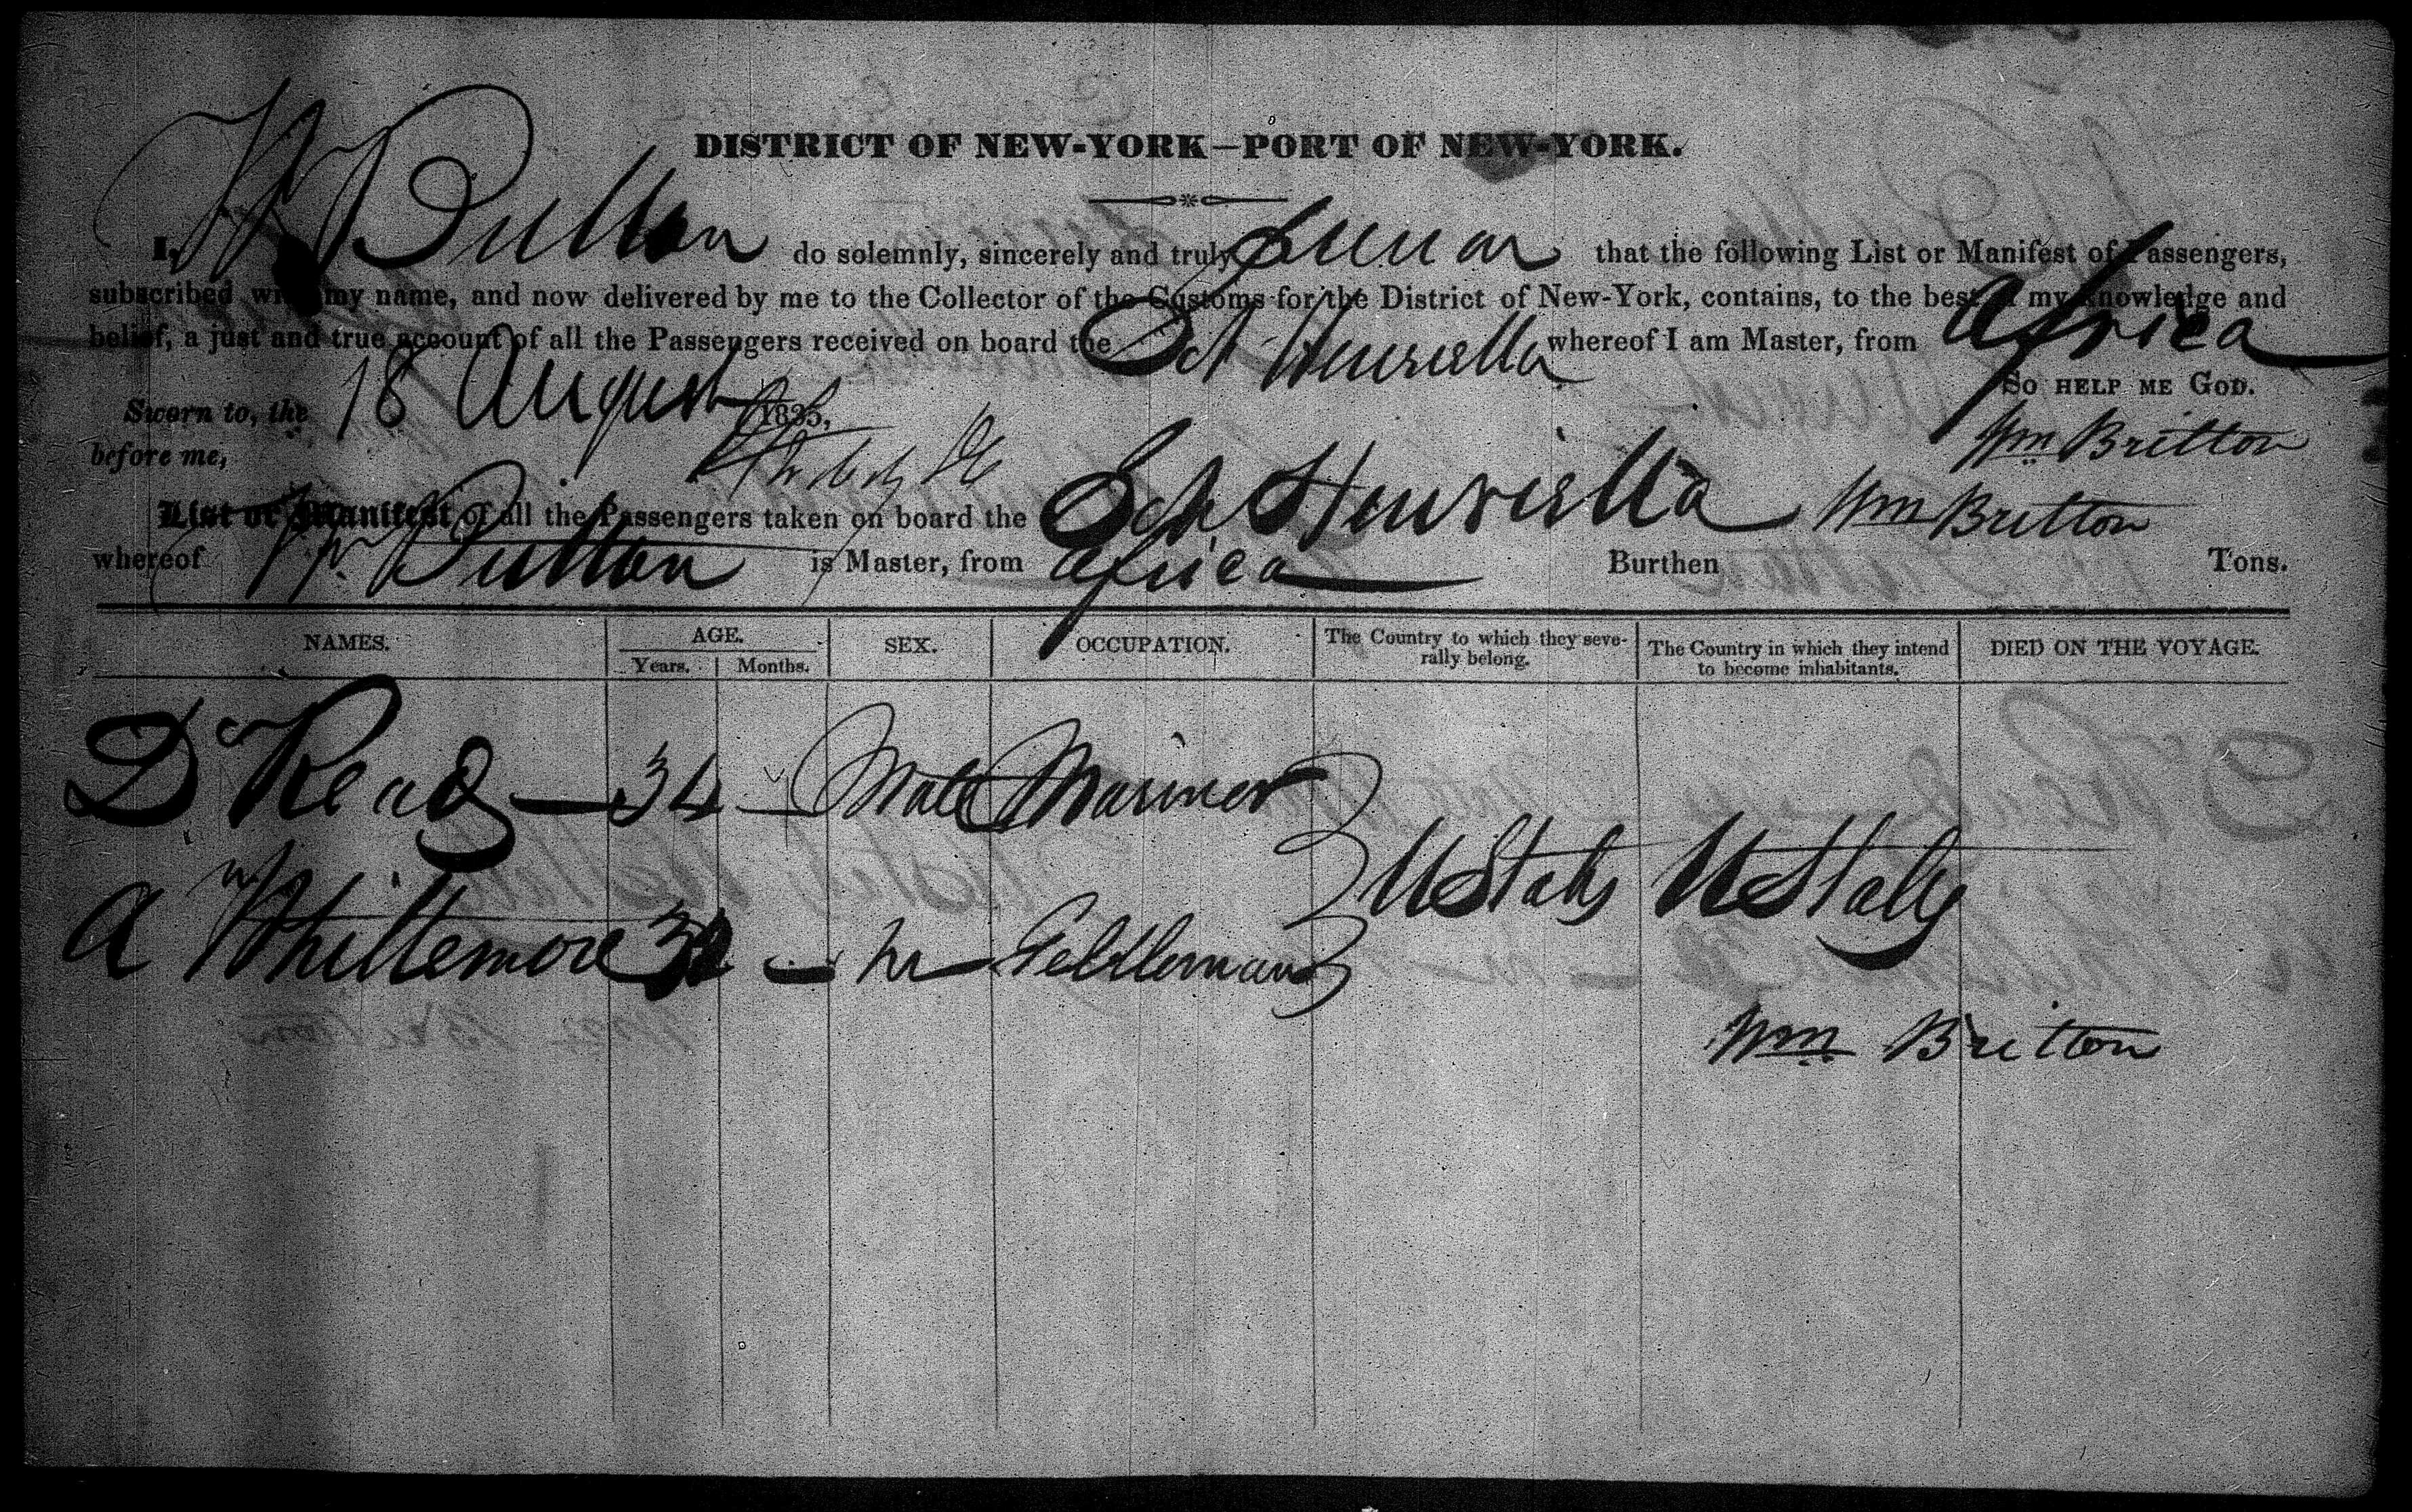 DISTRICT OF NEW-YORK—PORT OF NEW-YORK.
I, W Britton do solemnly, sincerely and truly swear that the following List or Manifest of Passengers,
subscribed with my name, and now delivered by me to the Collector of the Customs for the District of New-York, contains, to the best of my knowledge and
belief, a just and true account of all the Passengers received on board the Sch Henrietta whereof I am Master, from Africa
SO HELP ME GOD.
Sworn to, the 18 August 1835,
before me,
Wm Britton
List or Manifest of all the Passengers taken on board the Sch Henrietta Wm Britton
whereof Wm Britton is Master, from Africa Burthen Tons.
NAMES. AGE. SEX. OCCUPATION. The Country to which they severally belong. The Country in which they intend to become inhabitants. DIED ON THE VOYAGE.
Years. Months.
Dr Read 34 — Male Mariner
U States U States
A Whittemore — m Gentleman
Wm Britton